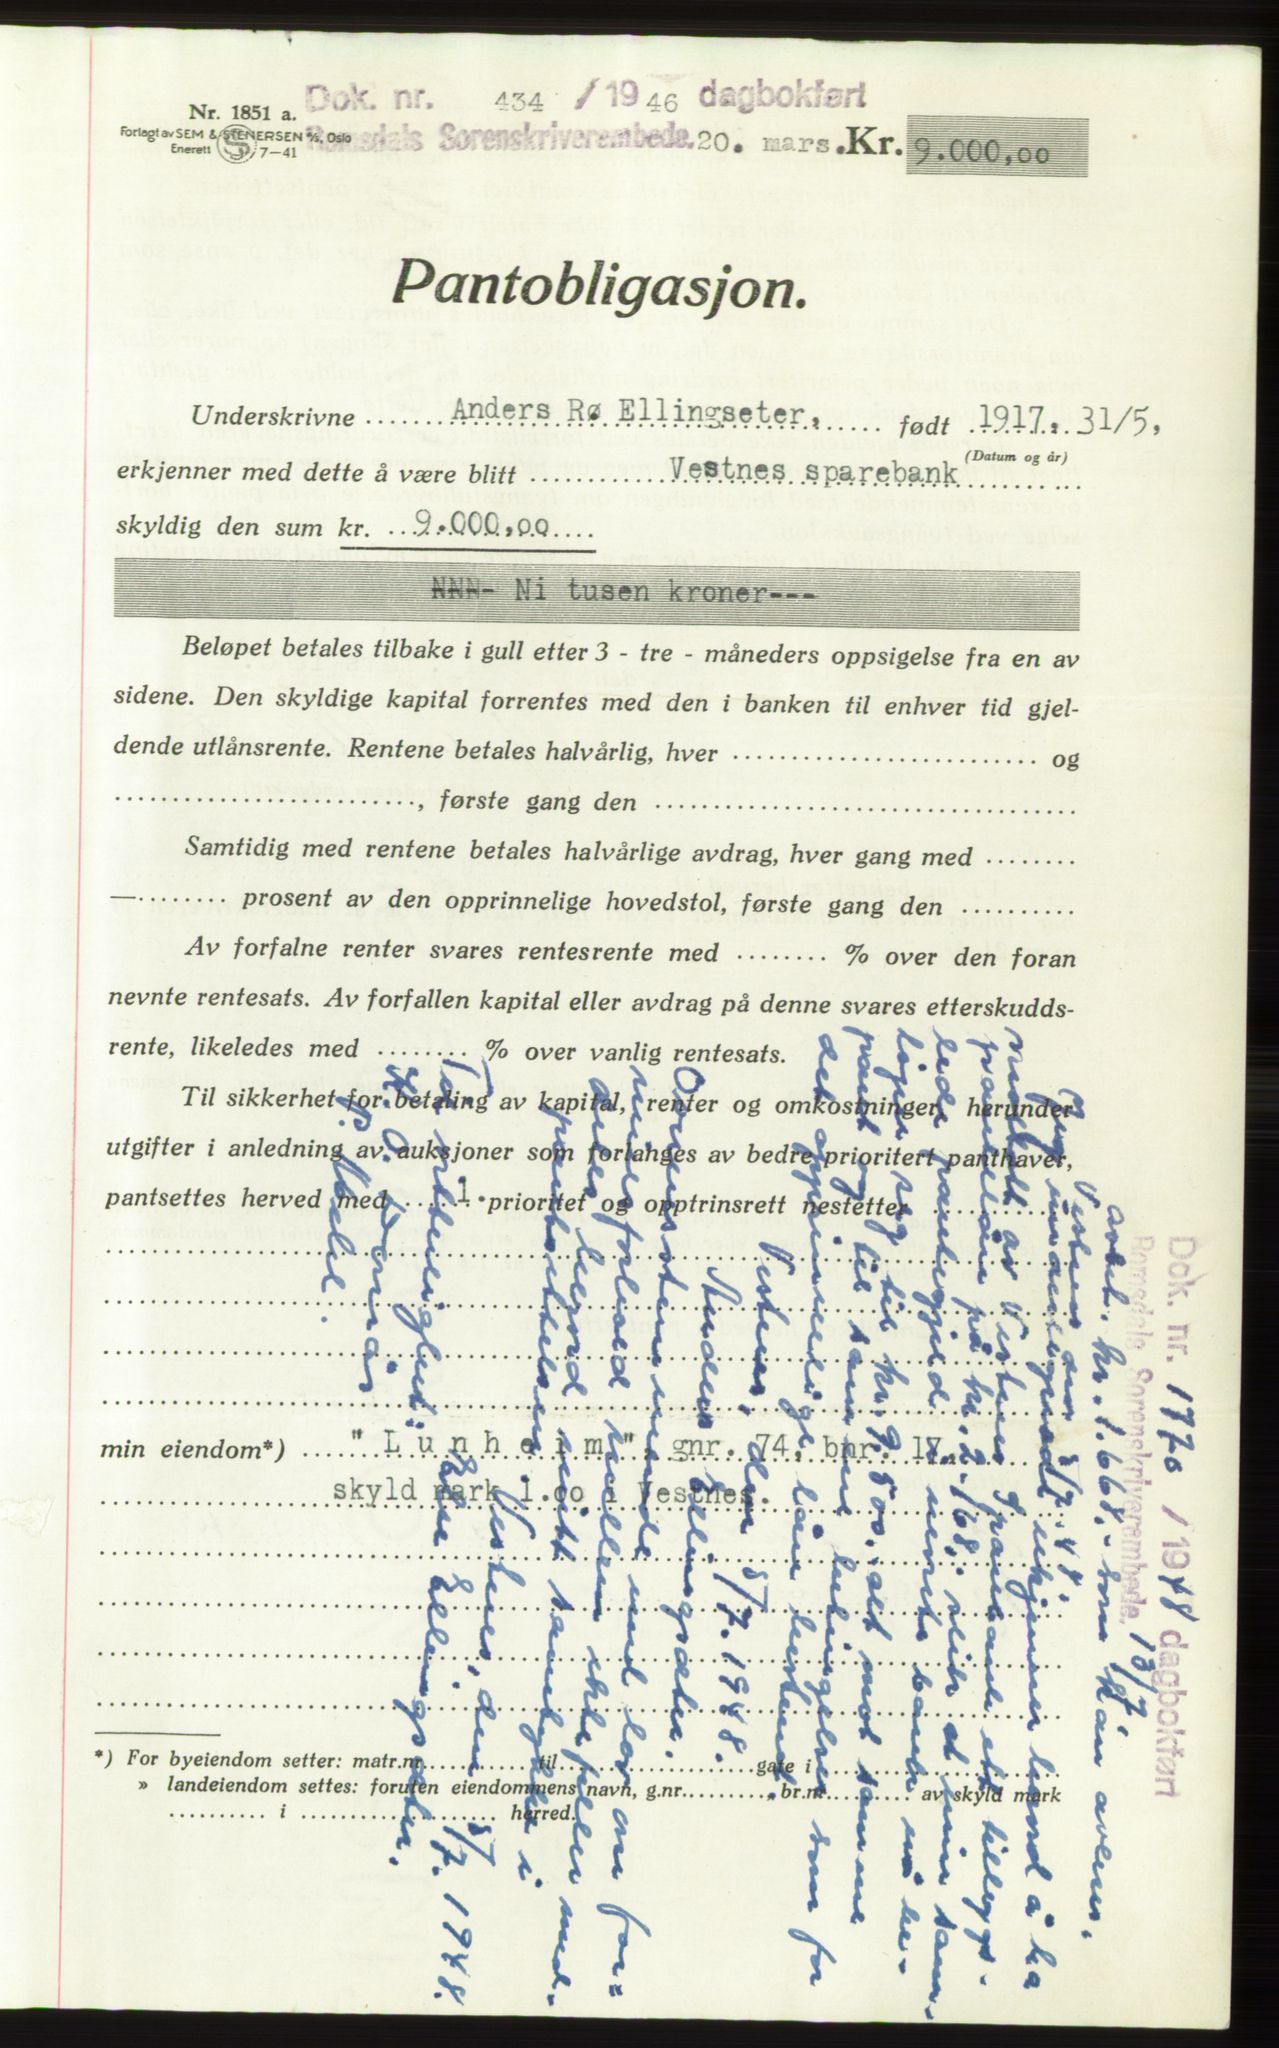 Dok. nr. 434 / 1946 dagbokført
Nr. 1851 a.
Forlagt av SEM & STENERSEN A/S, Oslo
Enerett S 7-41
Romsdals Sorenskriverembede. 20. mars. Kr. 9.000,00
Pantobligasjon.
Underskrivne Anders Rø Ellingseter, født 1917. 31/5,
(Datum og år)
erkjenner med dette å være blitt Vestnes sparebank
skyldig den sum kr. 9.000,00
NNN- Ni tusen kroner---
Beløpet betales tilbake i gull etter 3 - tre - måneders oppsigelse fra en av
sidene. Den skyldige kapital forrentes med den i banken til enhver tid gjel-
dende utlånsrente. Rentene betales halvårlig, hver .......... og
.........., første gang den ..........
Samtidig med rentene betales halvårlige avdrag, hver gang med ........
—........ prosent av den opprinnelige hovedstol, første gang den ..........
Av forfalne renter svares rentesrente med ........ % over den foran
nevnte rentesats. Av forfallen kapital eller avdrag på denne svares etterskudds-
rente, likeledes med ........ % over vanlig rentesats.
Til sikkerhet for betaling av kapital, renter og omkostninger, herunder
utgifter i anledning av auksjoner som forlanges av bedre prioritert panthaver,
pantsettes herved med 1. prioritet og opptrinsrett nestetter
min eiendom*) "Lunheim", gnr. 74, bnr. 17,
skyld mark 1.00 i Vestnes.
*) For byeiendom setter: matr.nr. .......... til .......... gate i ..........
» landeiendom settes: foruten eiendommens navn, g.nr. ........, br.nr. ........ av skyld mark
.......... i .......... herred.
Dok. nr. 1770 / 1948 dagbokført
Romsdals Sorenskriverembede. 13/7.
avbet. kr. 1.668,- som kan avleses.
Vestnes den 5/7.48.
undertegnede erkjenner herved å ha
mottatt av Vestnes Sparebank et tilleggs-
pantelån på kr. 2.468,- slik at min sam-
lede pantegjeld nevnte bank nå be-
løper seg til kr. 9.800.- alt mot samme
pant og til samme betingelser som for
det opprinnelige lån bestemt.
Vestnes, den 5/7. 1948.
Anders Ellingsæter.
Overensstemmende med lov om for-
mues forholdet mellem ektefeller med-
deles herved mitt samtykke i
pantsettelsen.
Vestnes, den 5/7. 1948.
Ellingsæter.
Til vitterlighet: